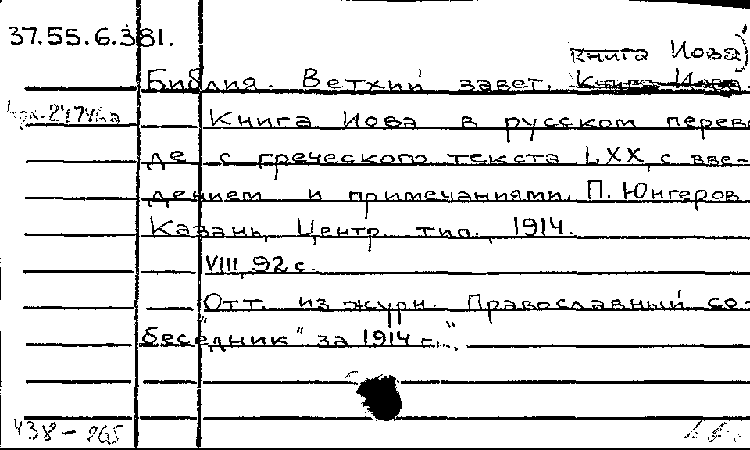 37.55.6.381.
Книга Иова)
Библия. Ветхий завет.
Книга Иова в русском перево
де с греческого текста LXX, с вве-
дением и примечаниями П. Юнгеров
Казань, Центр. тип., 1914.
VIII, 92 с.
Отт. из журн. Православный со-
беседник" за 1914 г.,"
438-865